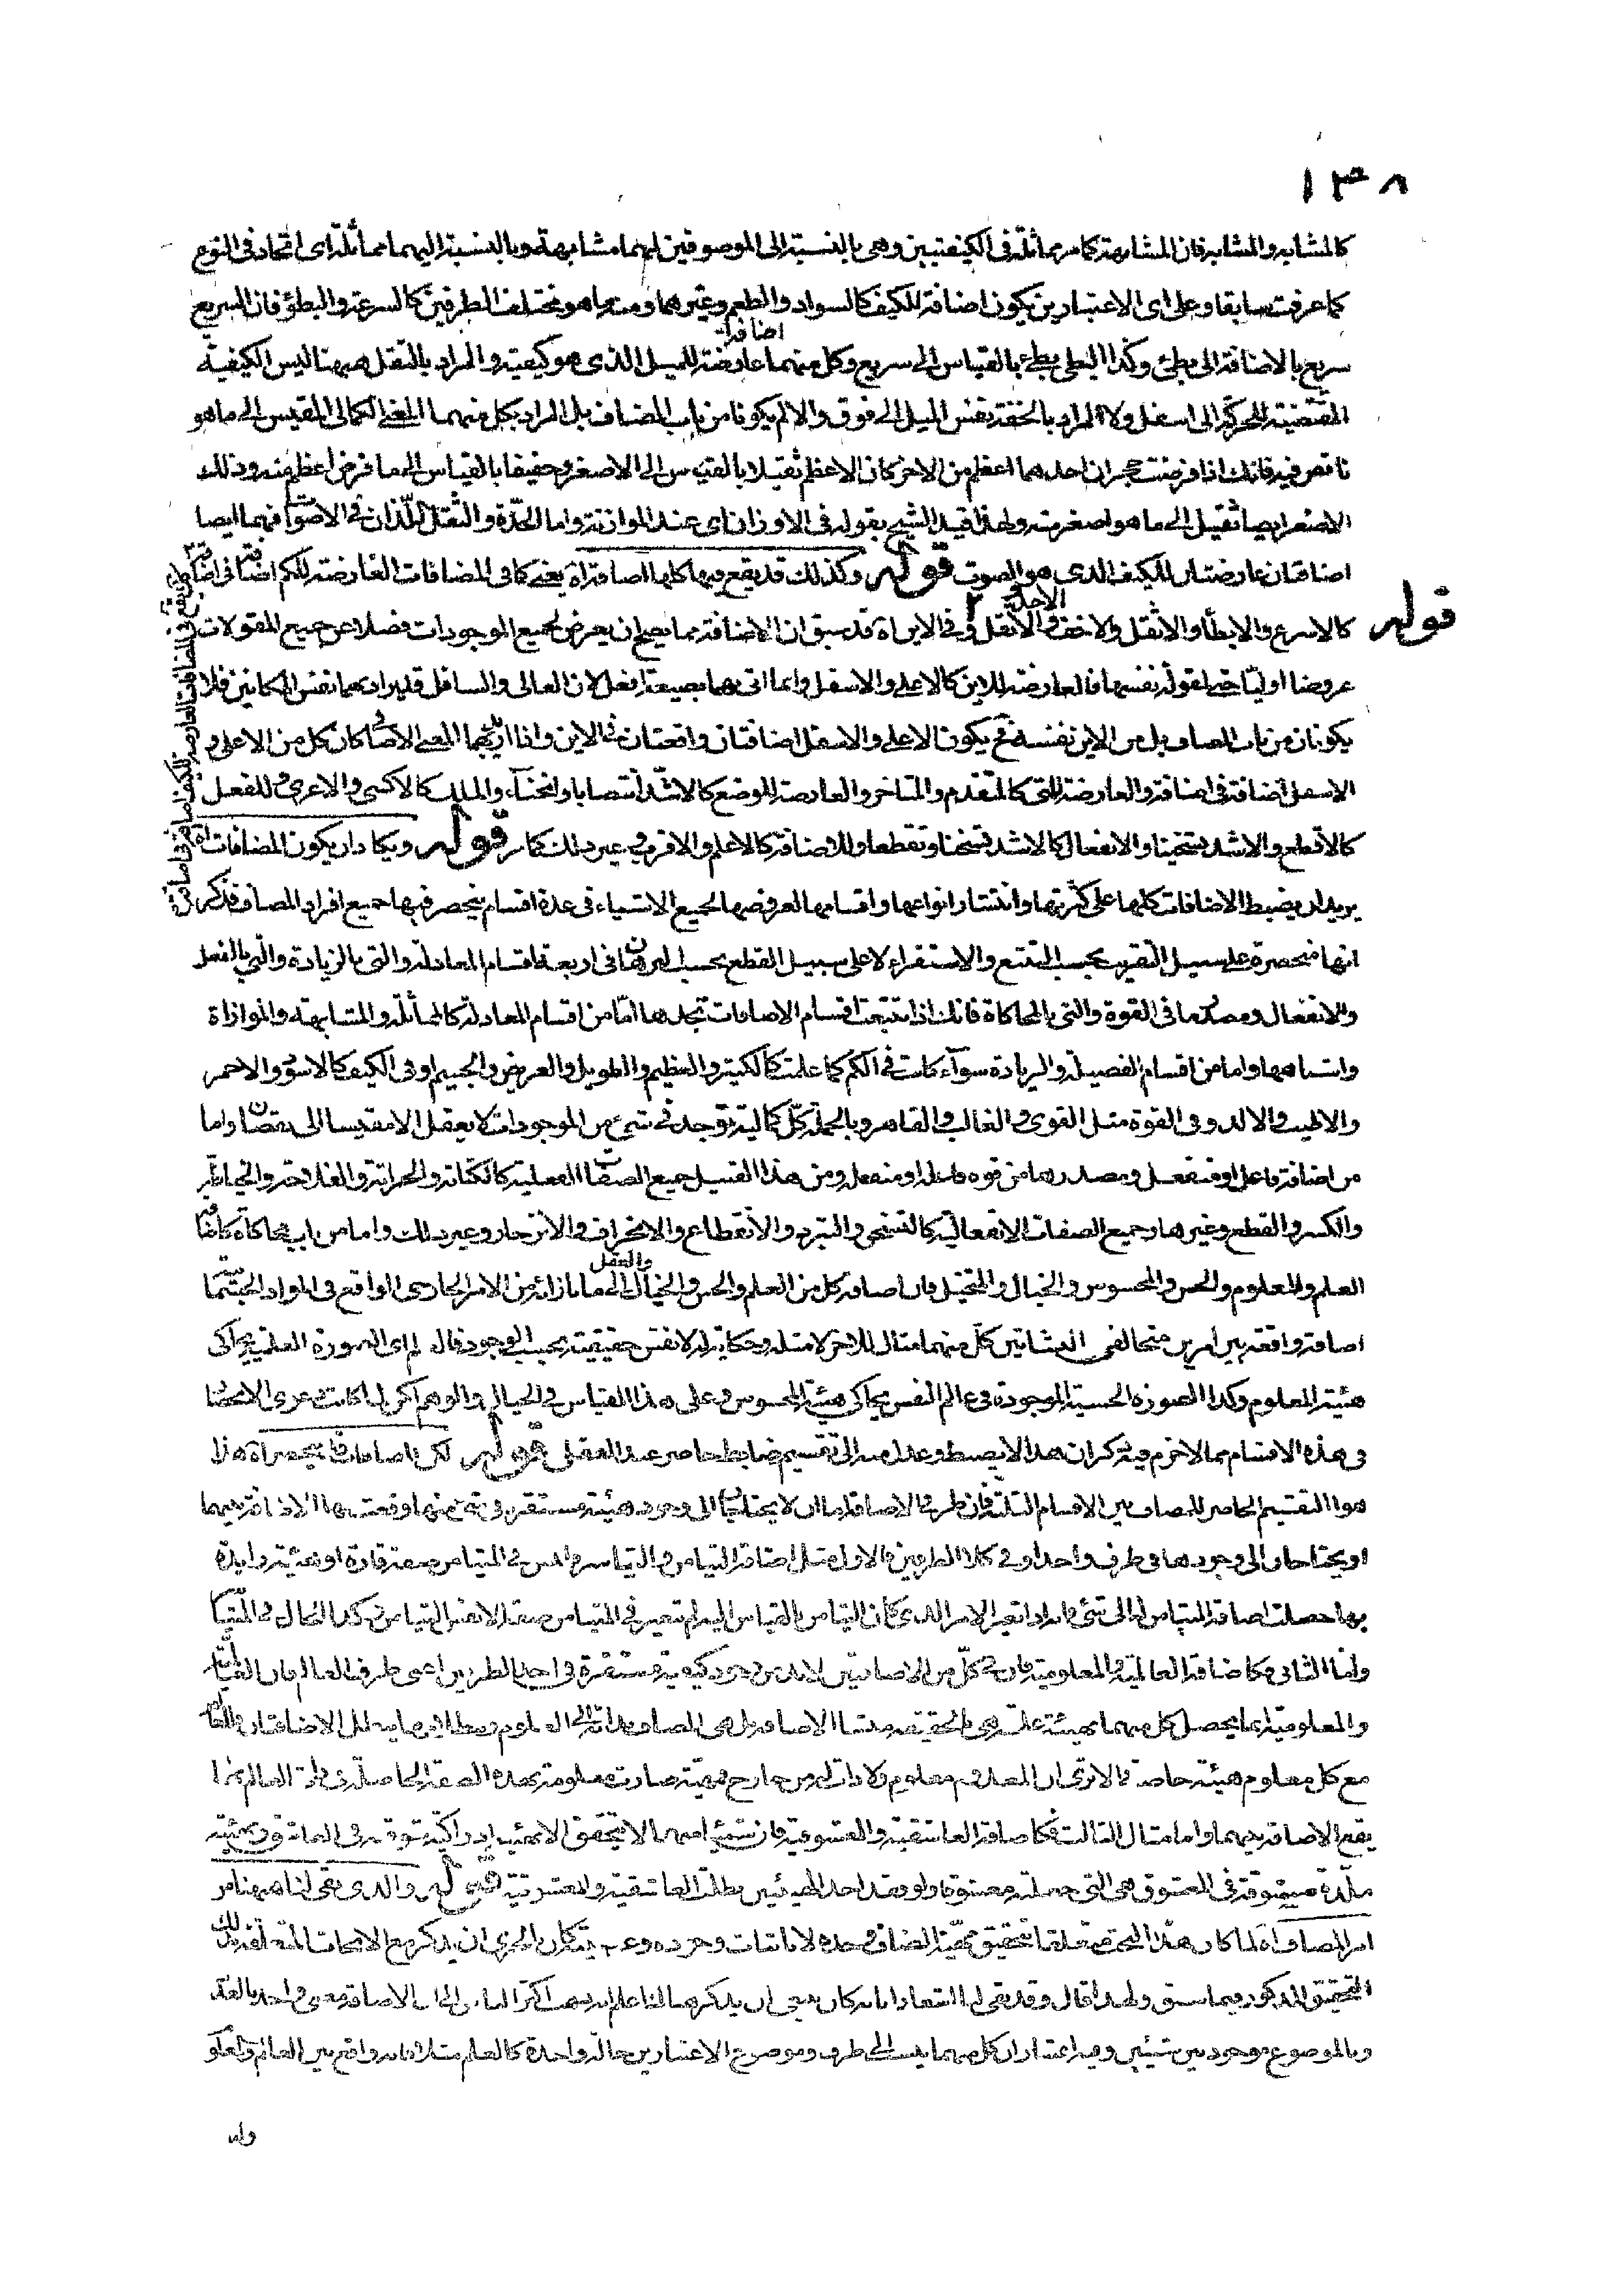 ١٣٨
كالمشابه والمشابه فان المشابهة كما مر مماثلة فى الكيفيتين وهى بالنسبة الى الموصوفين لهما مشابهة وبالنسبة اليهما مماثلة اى اتحاد فى النوع
كما عرفت سابقا وعلى اى الاعتبارين يكون اضافة للكيف كالسواد والطعم وغيرهما ومنه ما هو مختلف الطرفين كالسرعة والبطؤ فان السريع
اضافة
سريع بالاضافة الى بطئ وكذا البطى بطئ بالقياس الى سريع وكل منهما عارضة للميل الذى هو كيفية والمراد بالثقل ههنا ليس الكيفية
المقتضية للحركة الى اسفل ولا المراد بالخفة نفس الميل الى فوق والا لم يكونا من باب المضاف بل المراد بكل منهما المعنى الكمالى المقيس الى ما هو
ناقص فيه فانك اذا فرضت حجران احدهما اعظم من الاخر كان الاعظم ثقيلا بالقياس الى الاصغر وخفيفا بالقياس الى ما فرض اعظم منه وذلك
الاصغر ايضا ثقيل الى ما هو اصغر منه ولهذا قيد الشيخ بقوله فى الاوزان اى عند الموازنة واما الحدّة والثقل اللذان فى الاصوات فهما ايضا
اضافتان عارضتان للكيف الذى هو الصوت قوله وكذلك قد يقع فيها كلها اضافة اه يعنى كما فى المضافات العارضة للكم اضافة فى اضافة
قوله
كالاسرع والابطأ والاثقل والاخف والاحد والاثقل وفى الاين اه قد سبق ان الاضافة مما يصح ان يعرض لجميع الموجودات فضلا عن جميع المقولات
عروضا اوليّا حتى لمقولة نفسها فالعارضة للاين كالاعلى والاسفل وانما اتى بهما بصيغة افعل لان العالى والسافل قد يراد بهما نفس المكانين فلا
يكونان من باب المضاف بل من الاين نفسه فح يكون الاعلى والاسفل اضافتان واقعتان فى الاين واذا اريد بهما المعنى الاضافى كان كل من الاعلى و
الاسفل اضافة فى اضافة والعارضة للمتى كالمتقدم والمتاخر والعارضة للوضع كالاشد انتصابا وانحناء والملك كالاكسى والاعرى وللفعل
كالاقطع والاشد تسخينا والانفعال كالاشد تسخنا وتقطعا وللاضافة كالاعلم والاقرب وغير ذلك كما مر قوله ويكاد ان يكون المضافات اه
يريد ان يضبط الاضافات كلها على كثرتها وانتشار انواعها واقسامها لعروضها لجميع الاشياء فى عدة اقسام ينحصر فيها جميع افراد المضاف فذكر
انها منحصرة على سبيل التقريب بحسب التتبع والاستقراء لا على سبيل القطع بحسب البرهان فى اربعة اقسام المعادلة والتى بالزيادة والتى بالفعل
والانفعال ومصدرهما فى القوة والتى بالمحاكاة فانك اذا تتبعت اقسام الاضافات تجدها اما من اقسام المعادلة كالمماثلة والمشابهة والموازاة
واشباهها واما من اقسام الفضيلة والزيادة سواء كانت فى الكم كما علمت كالكثير والعظيم والطويل والعريض والجسيم او فى الكيف كالاسود والاحمر
والاطيب والالذ وفى القوة مثل القوى والغالب والقاهر وبالجملة كل كمالية توجد فى شئ من الموجودات لا يعقل الا مقيسا الى نقصان واما
من اضافة فاعل او منفعل ومصدرهما من قوة فاعلة او منفعلة ومن هذا القبيل جميع الصفات الفعلية كالكتابة والحراثة والفلاحة والخياطة
والكسر والقطع وغيرها وجميع الصفات الانفعالية كالتسخن والتبرد والانقطاع والانخراق والانزجار وغير ذلك واما من باب محاكاة كاضافة
والعقل
العلم والمعلوم والحس والمحسوس والخيال والمتخيل فان اضافة كل من العلم والحس والخيال الى ما بازائه من الامر الخارجى الواقع فى المواد الجسمية
اضافة واقعة بين امرين متخالفى النشاتين كل منهما مثال للاخر لا مثله وحكاية له لا نفس حقيقته بحسب الوجود فان اى الصورة العلمية يحاكى
هيئة المعلوم وكذا الصورة الحسية الموجودة فى عالم النفس يحاكى هيئة المحسوس وعلى هذا القياس فى الخيال والوهم لكن لما كانت دعوى الانحصار
فى هذه الاقسام مما لا جزم فيه ذكر ان هذا لا يضبط وعدل منه الى تقسيم ضابط حاصر عند العقل قوله لكن المضافات ينحصر اه هذا
هو التقسيم الحاصر للمضاف بين الاقسام الثلثة فان طرفى الاضافة اما ان لا يحتاجان الى وجود هيئة مستقرة فى شئ منهما وقعت بها الاضافة بينهما
او يحتاجان الى وجودها فى طرف واحد او فى كلا الطرفين فالاول مثل اضافة التيامن والتياسر فليس فى المتيامن صفة قارة او هيئة زايدة
بها حصلت اضافة المتيامن له الى شئ فاذا تغير الامر الذى كان التيامن بالقياس اليه لم تتغير فى المتيامن صفة الا نفس التيامن وكذا الحال فى المتياسر
واما الثانى فكاضافة العالمية والمعلومية فان فى كل من الاضافتين لابد من وجود كيفية مستقرة فى احد الطرفين اعنى طرف العالم فان العالمية
والمعلومية انما يحصل كل منهما بهيئة علمية هى بالحقيقة منشا الاضافة بل هى المضاف بذاته الى المعلوم
مع كل معلوم هيئة خاصة الا ترى ان المعدوم معلوم ولا ذات له من خارج فهيئة صارت معلومة بهذه الصفة الحاصلة فى ذات العالم انما
يقع الاضافة بينهما واما مثال الثالث فكاضافة العاشقية والمعشوقية فان شيئا منهما لا يتحقق الا بهيئة ادراكية شوقية فى العاشق وبهيئة
ملذة معشوقة فى المعشوق هى التى جعلته معشوقا ولو فقد احد الهيئتين بطلت العاشقية والمعشوقية قوله والذى بقى لنا ههنا من
امر المضاف اه لما كان هذا البحث متعلقا بتحقيق مهية المضاف وحده لا باثبات وجوده كان بالحرى ان يذكر مع الابحاث المتعلقة بذلك
التحقيق المذكور فيما سبق ولهذا قال وقد بقى اشعارا بانه كان ينبغى ان يذكر هنالك فاعلم ان مذهب اكثر الناس الى ان الاضافة معنى واحد بالعدد
وبالموضوع موجود بين شيئين وفيه اعتباران كل منهما ينسب الى طرف وموضوع الاعتبارين حالة واحدة كالعلم مثلا فانه واقع بين العالم والمعلوم
واما